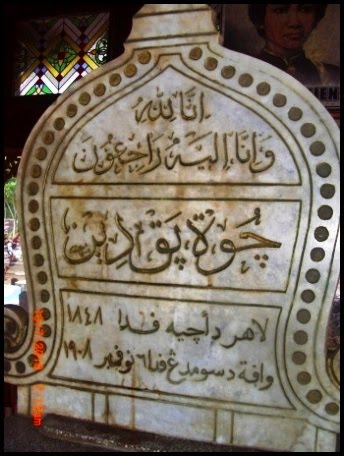 انا لله
وانا اليه راجعون
چوة يق دين
لاهر دأچيه فدا ١٨٤٨
وافة دسومدڠ فدا ٦ نوفمبر ١٩٠٨
HIEN